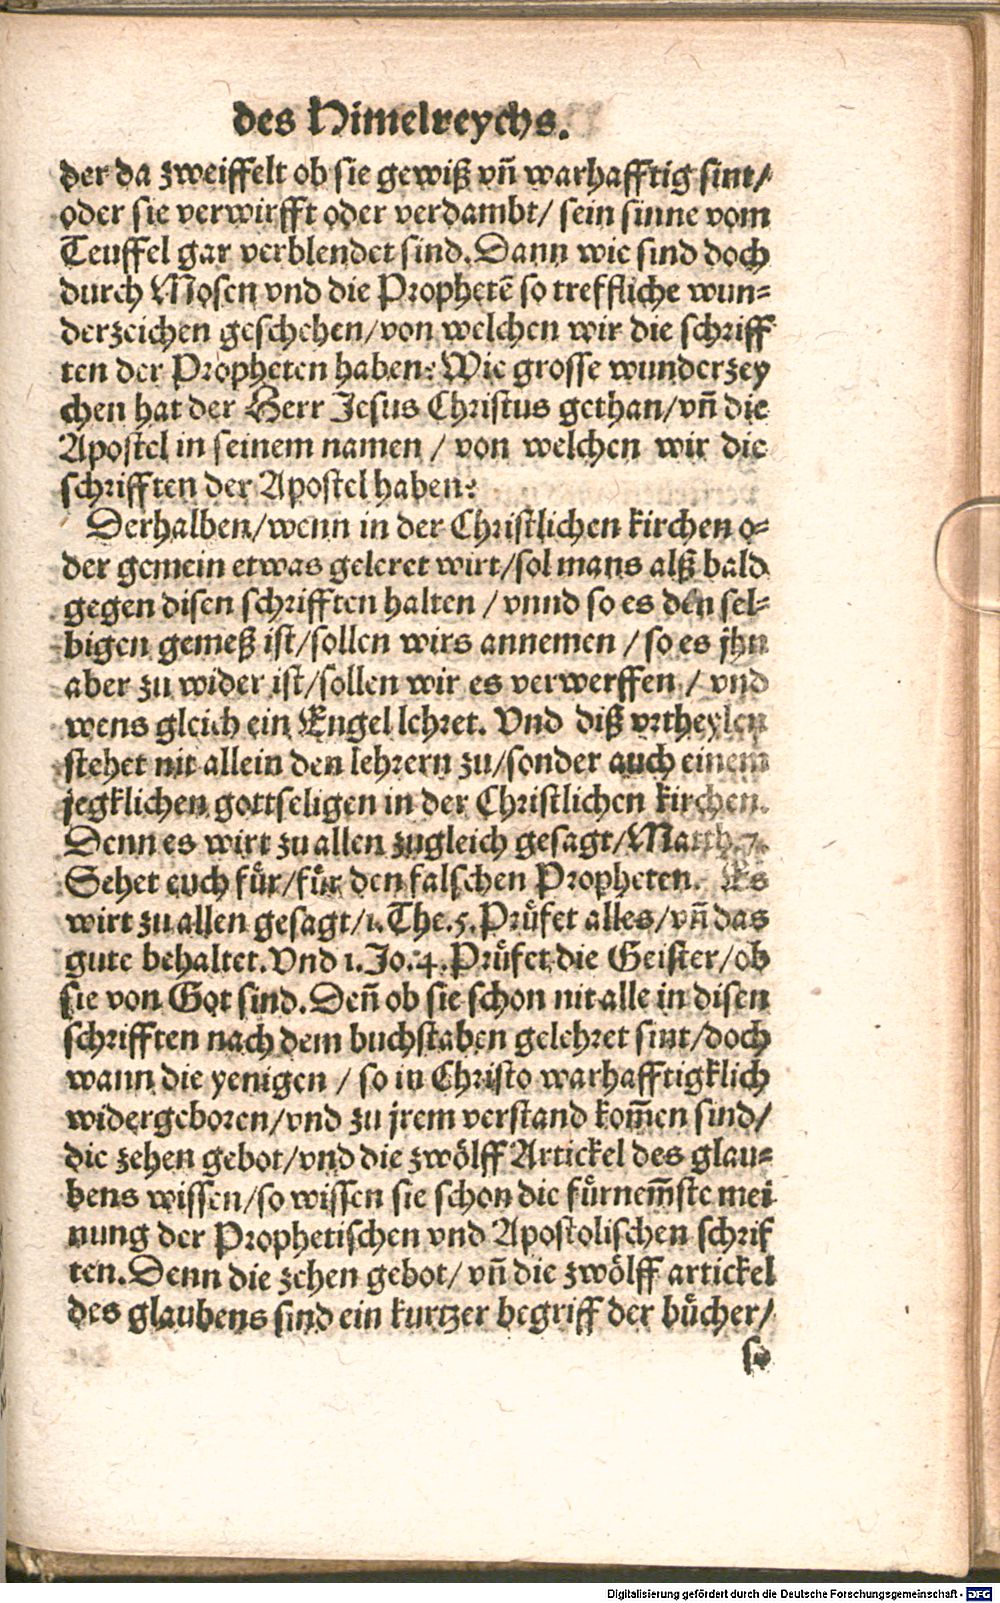 des Himelreychs.
der da zweiffelt ob sie gewiß vñ warhafftig sint/
oder sie verwirfft oder verdambt/ sein sinne vom
Teuffel gar verblendet sind. Dann wie sind doch
durch Mosen vnd die Prophetē so treffliche wun-
derzeichen geschehen/von welchen wir die schriff
ten der Propheten haben? Wie grosse wunderzey
chen hat der Herr Jesus Christus gethan/vñ die
Apostel in seinem namen / von welchen wir die
schrifften der Apostel haben?
Derhalben/wenn in der Christlichen kirchen o-
der gemein etwas geleret wirt/sol mans alß bald
gegen disen schrifften halten / vnnd so es den sel-
bigen gemeß ist/sollen wirs annemen / so es jhn
aber zu wider ist/sollen wir es verwerffen / vnd
wens gleich ein Engel lehret. Vnd diß vrtheylen
stehet nit allein den lehrern zu/sonder auch einem
jegklichen gottseligen in der Christlichen kirchen.
Denn es wirt zu allen zugleich gesagt/Matth. 7.
Sehet euch fuͤr/fuͤr den falschen Propheten. Es
wirt zu allen gesagt/1. The. 5. Pruͤfet alles/vñ das
gute behaltet. Vnd 1. Jo. 4. Pruͤfet die Geister/ob
sie von Got sind. Deñ ob sie schon nit alle in disen
schrifften nach dem buchstaben gelehret sint/doch
wann die yenigen / so in Christo warhafftigklich
widergeboren/vnd zu jrem verstand kom̄en sind/
die zehen gebot/vnd die zwoͤlff Artickel des glau-
bens wissen/so wissen sie schon die fuͤrnem̄ste mei
nung der Prophetischen vnd Apostolischen schrif
ten. Denn die zehen gebot/ vñ die zwoͤlff artickel
des glaubens sind ein kurtzer begriff der buͤcher/
so
Digitalisierung gefördert durch die Deutsche Forschungsgemeinschaft - DFG